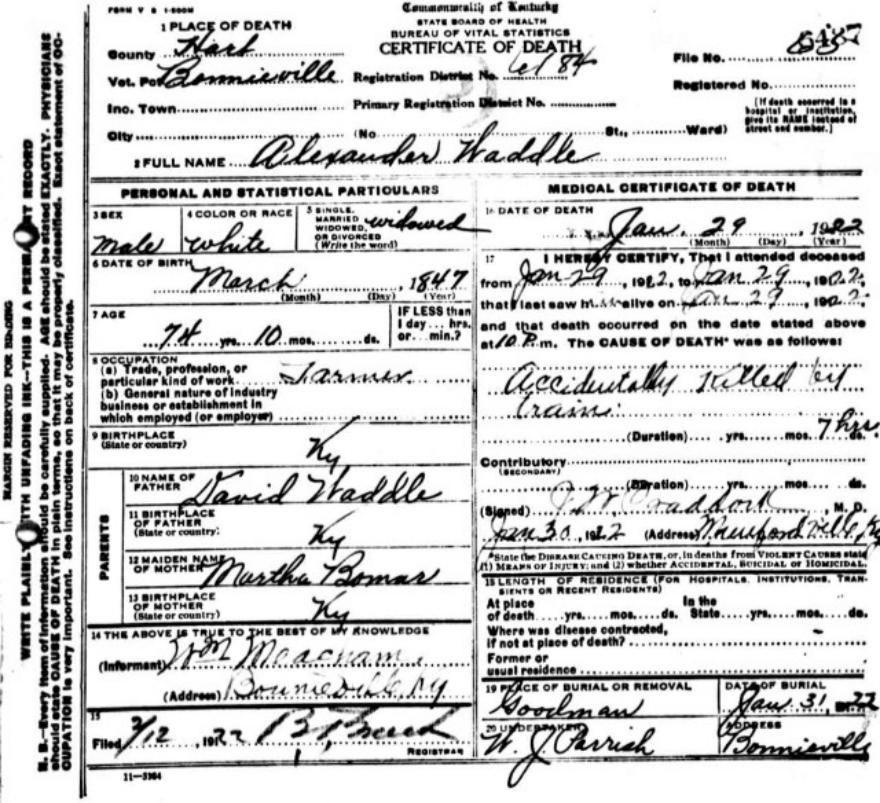 FORM V S 1-500M
Commonwealth of Kentucky
STATE BOARD OF HEALTH
BUREAU OF VITAL STATISTICS
CERTIFICATE OF DEATH
1 PLACE OF DEATH
County Hart
Vot. Pct Bonnieville
Registration District No. 6184
File No.
Inc. Town
Primary Registration District No.
Registered No.
(If death occurred in a hospital or institution, give its NAME instead of street and number.)
City (No St., Ward)
2 FULL NAME Alexander Waddle
PERSONAL AND STATISTICAL PARTICULARS
3 SEX
male
4 COLOR OR RACE
white
5 SINGLE, MARRIED WIDOWED, OR DIVORCED (Write the word)
widowed
6 DATE OF BIRTH
March , 1847
(Month) (Day) (Year)
7 AGE
74 yrs. 10 mos. ds.
IF LESS than
1 day... hrs.
or... min.?
8 OCCUPATION
(a) Trade, profession, or
particular kind of work Farmer
(b) General nature of industry
business or establishment in
which employed (or employer)
9 BIRTHPLACE
(State or country)
Ky
PARENTS
10 NAME OF
FATHER David Waddle
11 BIRTHPLACE
OF FATHER
(State or country)
Ky
12 MAIDEN NAME
OF MOTHER Martha Bomar
13 BIRTHPLACE
OF MOTHER
(State or country)
Ky
14 THE ABOVE IS TRUE TO THE BEST OF MY KNOWLEDGE
(Informant) Wm Meacham
(Address) Bonnieville, Ky
15
Filed 2/12, 1922
REGISTRAR
11-3184
MEDICAL CERTIFICATE OF DEATH
16 DATE OF DEATH
Jan. 29 1922
(Month) (Day) (Year)
17 I HEREBY CERTIFY, That I attended deceased
from Jan 29, 1922, to Jan 29, 1922
that I last saw h alive on Jan 29, 1922
and that death occurred on the date stated above
at 10 P.m. The CAUSE OF DEATH* was as follows:
Accidentally Killed by
train
(Duration) yrs. mos. 7 hrs. ds.
Contributory
(SECONDARY)
(Duration) yrs. mos. ds.
(Signed) Craddock, M. D.
Jan 30, 1922 (Address) Munfordville, Ky
*State the DISEASE CAUSING DEATH, or, in deaths from VIOLENT CAUSES state
(1) MEANS OF INJURY; and (2) whether ACCIDENTAL, SUICIDAL or HOMICIDAL.
18 LENGTH OF RESIDENCE (FOR HOSPITALS, INSTITUTIONS, TRAN-
SIENTS OR RECENT RESIDENTS)
At place of death yrs. mos. ds. In the State yrs. mos. ds.
Where was disease contracted,
if not at place of death?
Former or
usual residence
19 PLACE OF BURIAL OR REMOVAL
Goodman
DATE OF BURIAL
Jan 31, 22
20 UNDERTAKER
W. J. Parrish
ADDRESS
Bonnieville
MARGIN RESERVED FOR BINDING
WRITE PLAINLY WITH UNFADING INK—THIS IS A PERMANENT RECORD
N. B.—Every item of information should be carefully supplied. AGE should be stated EXACTLY. PHYSICIANS
should state CAUSE OF DEATH in plain terms, so that it may be properly classified. Exact statement of OC-
CUPATION is very important. See instructions on back of certificate.